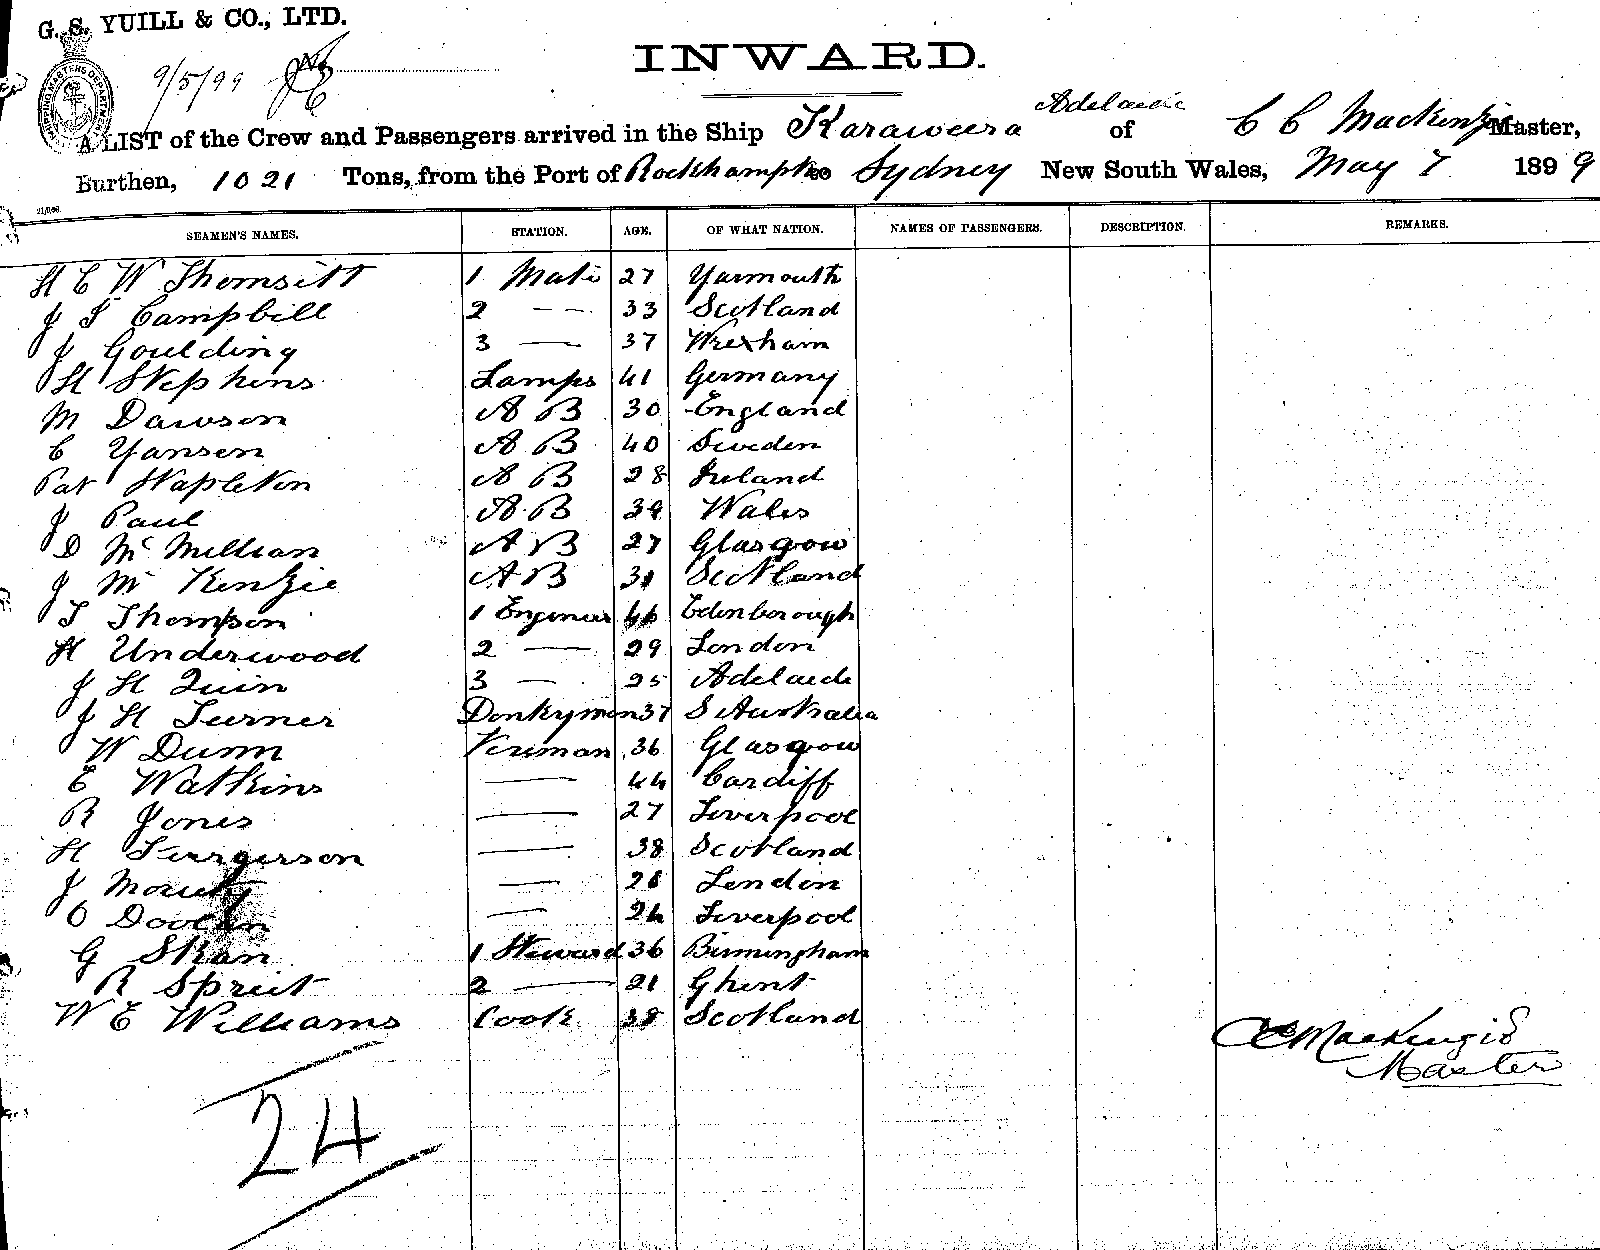 G. S. YUILL & CO., LTD.
9/5/99
INWARD.
A LIST of the Crew and Passengers arrived in the Ship Karaweera of Adelaide C C Mackenzie Master,
Burthen, 1021 Tons, from the Port of Rockhampton to Sydney New South Wales, May 7 1899
SEAMEN'S NAMES. STATION. AGE. OF WHAT NATION. NAMES OF PASSENGERS. DESCRIPTION. REMARKS.
H C W Thomsitt 1 Mate 27 Yarmouth
J T Campbill 2 — 33 Scotland
J Goulding 3 — 37 Wrexham
H Stephens Lamps 41 Germany
M Dawson A B 30 England
C Yansen A B 40 Sweden
Pat Stapleton A B 28 Ireland
J Paul A B 39 Wales
D Mc Millan A B 27 Glasgow
J Mc Kenzie A B 31 Scotland
T Thompson 1 Engineer 46 Edenborough
H Underwood 2 — 29 London
J H Quin 3 — 25 Adelaide
J H Turner Donkyman 37 S Australia
W Dunn Fireman 36 Glasgow
E Watkins — 44 Cardiff
R Jones — 27 Liverpool
H Furgerson — 38 Scotland
J — 28 London
O Doolan — 24 Liverpool
G Skan 1 Steward 36 Birmingham
R Spreit 2 — 21 Ghent
W E Williams Cook 38 Scotland
C C MacKenzie
Master
24